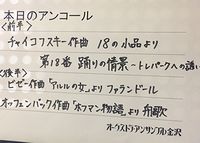 本日のアンコール
〈前半〉
チャイコフスキー作曲 18の小品より
第18番 踊りの情景～トレパークへの誘い
〈後半〉
ビゼー作曲「アルルの女」より ファランドール
オッフェンバック作曲「ホフマン物語」より 舟歌
オーケストラ・アンサンブル金沢